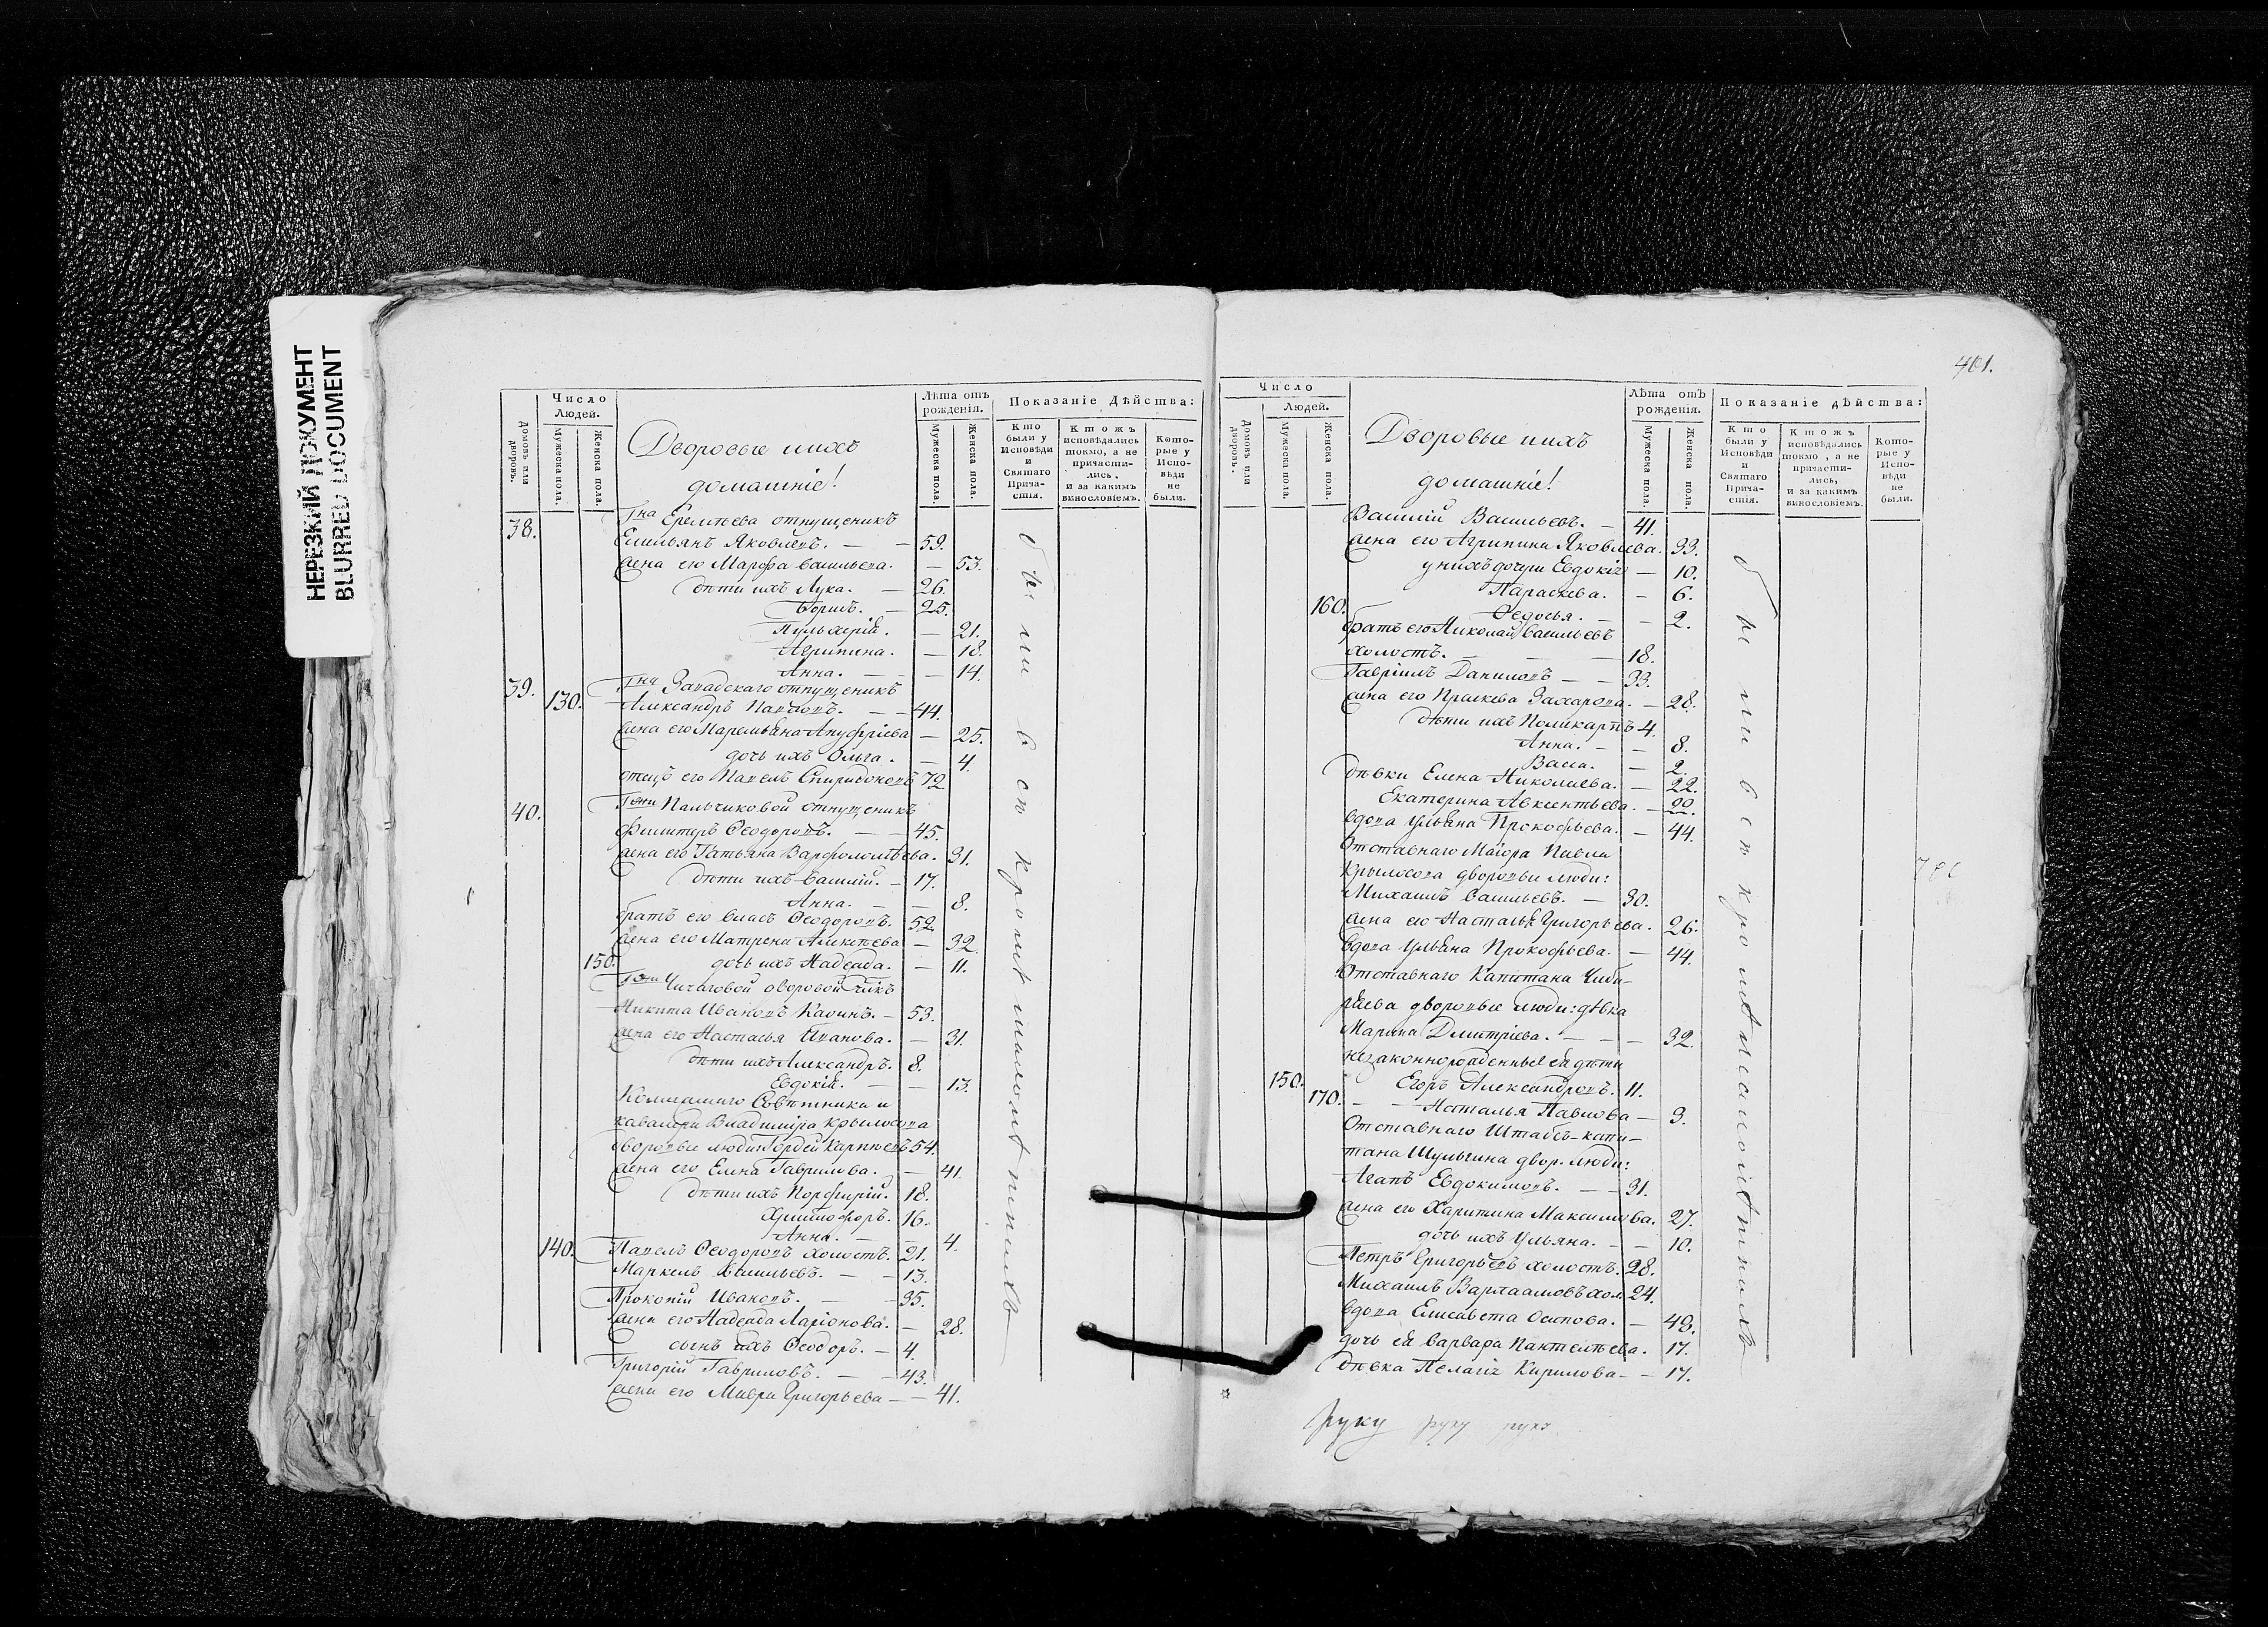 НЕРЕЗКИЙ ДОКУМЕНТ
BLURRED DOCUMENT
Число
Людей.
Домовъ или дворовъ.
Мужеска пола.
Женска пола.
Дворовые и ихъ
домашніе!
Лѣта отъ рожденія.
Мужеска пола.
Женска пола.
Показаніе Дѣйства:
Кто были у Исповѣди и Святаго Прича-стія.
Ктожъ исповѣдались токмо, а не причасти-лись, и за какимъ винословіемъ.
Кото-рые у Испо-вѣди не были.
38. Гна Еремѣева отпущеникъ
Емильянъ Яковлевъ. — — 59.
жена его Марфа Васильева. — 53.
дѣти ихъ Лука. — 26.
Борисъ. — 25.
Пульхерія. — 21.
Агрипина. — 18.
Анна. — — 14.
39. Гна Западскаго отпущеникъ
130. Александръ Павловъ. — — 44.
жена его Маремьяна Ануфріева — 25.
дочь ихъ Ольга. — 4.
отецъ его Павелъ Спиридоновъ 72
40. Гжи Пальчиковой отпущеникъ
Филиперъ Ѳеодоровъ. — — 45.
жена его Татьяна Варфоломѣева. 31.
дѣти ихъ Василій. — 17.
Анна. — — 8.
братъ его Власъ Ѳеодоровъ. 52.
жена его Матрена Алексѣева — 32
150. дочь ихъ Надежда. — 11.
Гжи Чичаговой дворовой члкъ
Никита Ивановъ — 53.
жена его Настасья Иванова. — 31.
дѣти ихъ Александръ. 8.
Евдокія. — — 13.
Коллежскаго Совѣтника и
кавалера Владиміра Крылосова
дворовые люди: Гордей Карповъ 54.
жена его Елена Гаврилова. — 41.
дѣти ихъ Порфирій. 18.
Христофоръ. 16.
Анна. — — 4.
140. Павелъ Ѳеодоровъ холостъ. 21.
Маркелъ Васильевъ. — — 13.
Прокопій Ивановъ. — — 35.
жена его Надежда Ларіонова. — 28.
сынъ ихъ Ѳеодоръ. — 4.
Григорій Гавриловъ. — — 43.
жена его Мавра Григорьева — — 41.
были вси кромѣ малолѣтнихъ
401.
Число
Людей.
Домовъ или дворовъ.
Мужеска пола.
Женска пола.
Дворовые и ихъ
домашніе!
Лѣта отъ рожденія.
Мужеска пола.
Женска пола.
Показаніе дѣйства:
Кто были у Исповѣди и Святаго Прича-стія.
Ктожъ исповѣдались токмо, а не причасти-лись, и за какимъ винословіемъ.
Кото-рые у Испо-вѣди не были.
Василій Васильевъ. — 41.
жена его Агрипина Яковлева. 33.
у нихъ дочери Евдокія — 10.
Параскева. — 6.
160. Ѳедосья. — — 2.
братъ его Николай Васильевъ
холостъ. — — — 18.
Гавріилъ Даниловъ — — 33.
жена его Праскева Захарова. — 28.
дѣти ихъ Поликарпъ 4.
Анна. — — 8.
Васса. — 2.
дѣвки Елена Николаева. — 22.
Екатерина Авксентьева. — 20.
вдова Ульяна Прокофьева. — 44.
Отставнаго Маіора Павла
Крылосова дворовые люди:
Михаилъ Васильевъ. — 30.
жена его Наталья Григорьева. 26.
вдова Ульяна Прокофьева. — 44.
Отставнаго Капитана Чиби-
ряева дворовые люди: дѣвка
Марина Дмитріева. — — — 32.
незаконнорожденные ея дѣти
150. Егоръ Александровъ. 11.
170. — — Наталья Павлова — 3.
Отставнаго Штабсъ-капи-
тана Шульгина двор. люди:
Агапъ Евдокимовъ. — — 31.
жена его Харитина Максимова. 27.
дочь ихъ Ульяна. — — 10.
Петръ Григорьевъ холостъ. 28.
Михаилъ Варлаамовъ хол. 24.
вдова Елисавета Осипова. — 43.
дочь ея Варвара Пантелѣева. 17.
дѣвка Пелагія Кирилова — — 17.
были вси кромѣ малолѣтнихъ
руку руку руку